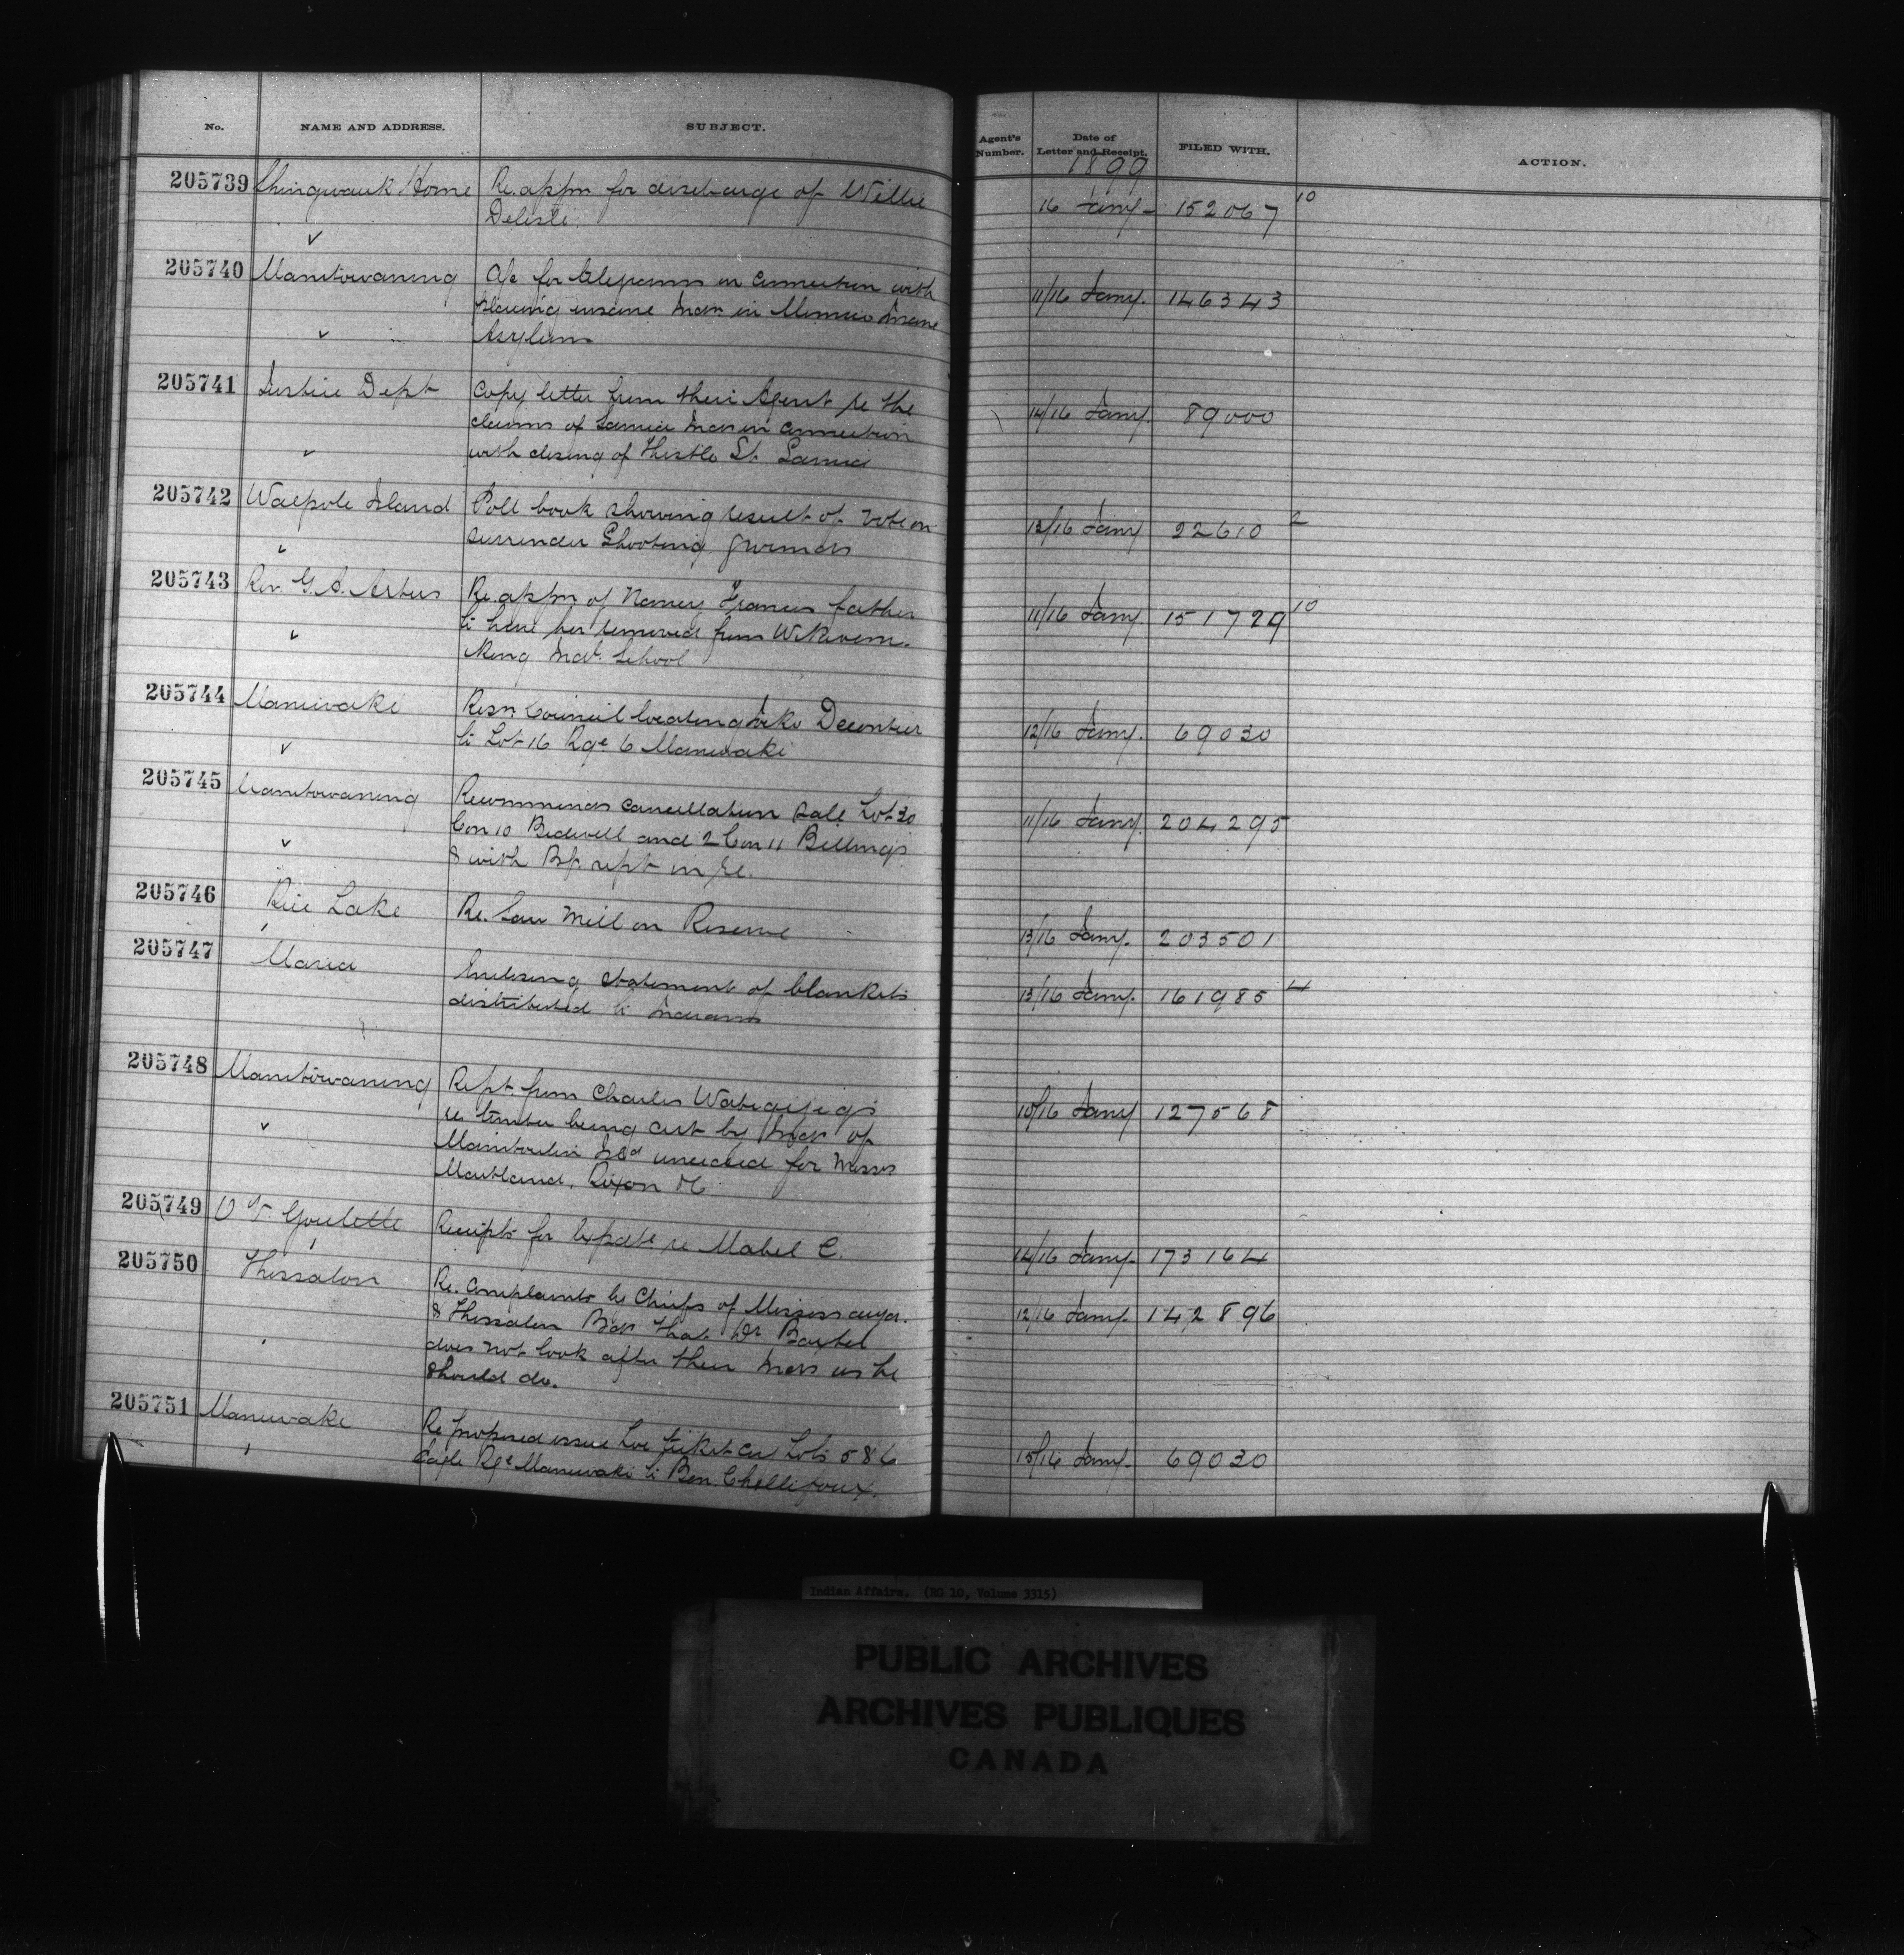 No. NAME AND ADDRESS. SUBJECT. Agent's Number. Date of Letter and Receipt. FILED WITH. ACTION.
1899
205739 Shingwauk Home Re. appn for discharge of Willie 16 Jany- 152067 10
Delisle.
205740 Manitowaning A/c for telegrams in connection with 11/16 Jany. 146343
placing insane Indn in Mimico Insane
Asylum
205741 Justice Dept Copy letter from their Agent re the 14/16 Jany. 89000
claims of Sarnia Inds in connection
with closing of Thistle St. Sarnia
205742 Walpole Island Poll book showing result of vote on 13/16 Jany 22610 2
surrender Shooting grounds
205743 Rev. G. A. Artus Re. appn of Nancy Francis father 11/16 Jany. 151729 10
to have her removed from Wikwem-
ikong Indl. School
205744 Maniwaki Resn Council locating Decontier 12/16 Jany. 69030
to Lot 16 Rge 6 Maniwaki
205745 Manitowaning Recommends cancellation sale Lot 30 11/16 Jany. 204295
Con 10 Bidwell and 2 Con 11 Billings
& with rept in re.
205746 Rice Lake Re. Saw Mill on Reserve 13/16 Jany. 203501
205747 Maria Enclosing statement of blankets 13/16 Jany. 161985 4
distributed to Indians
205748 Manitowaning Rept. from Charles Wabegijigs 10/16 Jany 127568
re timber being cut by Inds of
Manitoulin Isd unceded for Messrs
Maitland, Rixon &c
205749 O V. Goulette Receipts for expdte re Mabel C. 14/16 Jany. 173164
205750 Thessalon Re. complaints by Chiefs of Mississauga. 12/16 Jany. 142896
& Thessalon Bds that Dr Baxter
does not look after their Inds as he
should do.
205751 Maniwaki Re proposed issue Loc ticket cov Lots 5 & 6 15/16 Jany. 69030
Eagle Rge Maniwaki to Ben. Chellifoux.
Indian Affairs. (RG 10, Volume 3315)
PUBLIC ARCHIVES
ARCHIVES PUBLIQUES
CANADA